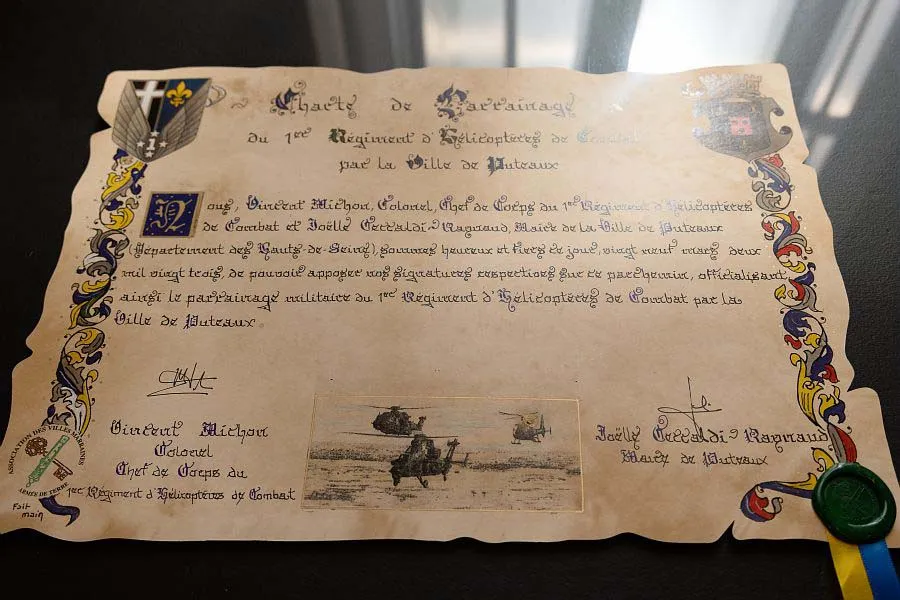 Charte de Parrainage
du 1er Régiment d'Hélicoptères de Combat
par la Ville de Puteaux
Nous, Vincent Michon, Colonel, Chef de Corps du 1er Régiment d'Hélicoptères
de Combat et Joëlle Ceccaldi-Raynaud, Maire de la Ville de Puteaux
(Département des Hauts-de-Seine), sommes heureux et fiers ce jour, vingt neuf mars deux
mil vingt trois, de pouvoir apposer nos signatures respectives sur ce parchemin, officialisant
ainsi le parrainage militaire du 1er Régiment d'Hélicoptères de Combat par la
Ville de Puteaux
Vincent Michon
Colonel
Chef de Corps du
1er Régiment d'Hélicoptères de Combat
Joëlle Ceccaldi-Raynaud
Maire de Puteaux
ASSOCIATION DES VILLES MARRAINES
ARMÉE DE TERRE
Fait
main
1